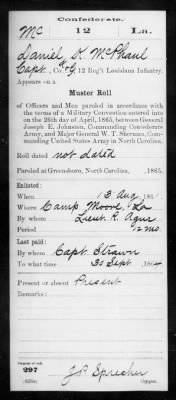 Confederate.
Mc 12 La.
Daniel K McPhaul
Capt, Co. G, 12 Reg't Louisiana Infantry.
Appears on a
Muster Roll
of Officers and Men paroled in accordance with
the terms of a Military Convention entered into
on the 26th day of April, 1865, between General
Joseph E. Johnston, Commanding Confederate
Army, and Major General W. T. Sherman, Com-
manding United States Army in North Carolina.
Roll dated not dated
, 1865.
Paroled at Greensboro, North Carolina, , 1865.
Enlisted:
When 13 Aug, 1861.
Where Camp Moore, La
By whom Lieut. R. Agur
Period 12 mo.
Last paid:
By whom Capt. Strawn
To what time 30 Sept, 1864
Present or absent Present
Remarks:
Number of roll:
297 J.P. Sprecher
(639d) Copyist.